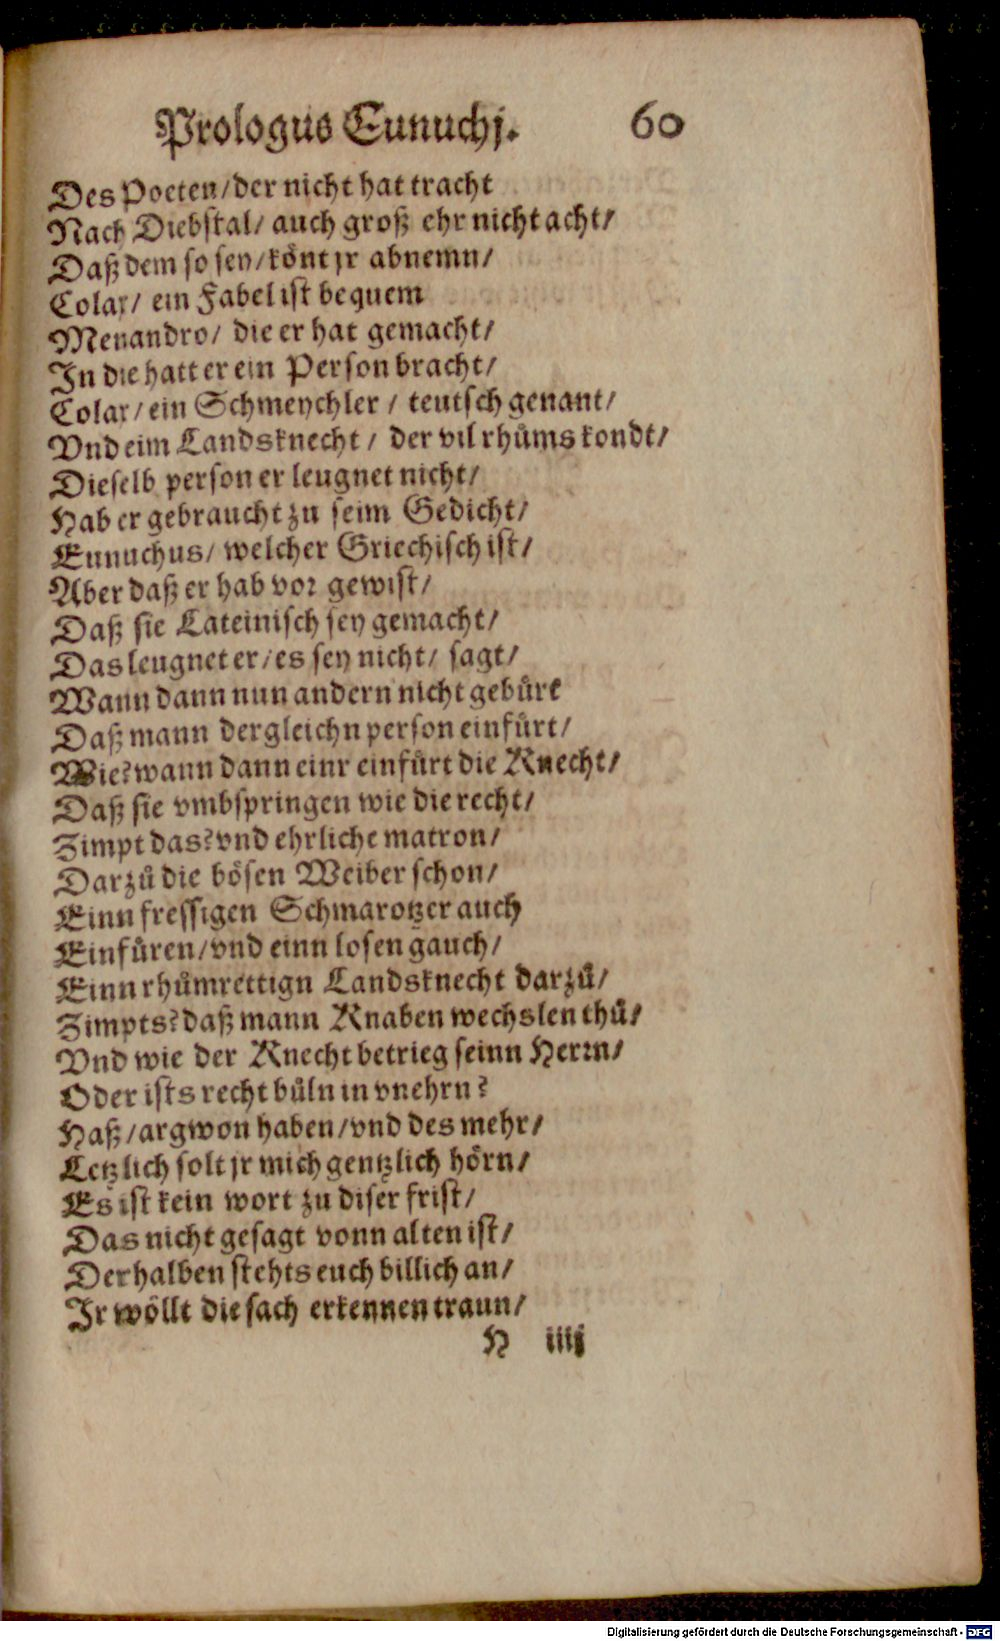 Prologus Eunuchj. 60
Des Poeten/der nicht hat tracht
Nach Diebstal/ auch groß ehr nicht acht/
Daß dem so sey/könt jr abnemn/
Colax/ ein Fabel ist bequem
Menandro/ die er hat gemacht/
In die hatt er ein Person bracht/
Colax/ein Schmeychler / teutsch genant/
Vnd eim Landsknecht / der vil rhůms kondt/
Dieselb person er leugnet nicht/
Hab er gebraucht zu seim Gedicht/
Eunuchus/ welcher Griechisch ist/
Aber daß er hab vor gewist/
Daß sie Lateinisch sey gemacht/
Das leugnet er/es sey nicht/ sagt/
Wann dann nun andern nicht gebürt
Daß mann dergleichn person einfürt/
Wie?wann dann einr einfürt die Knecht/
Daß sie vmbspringen wie die recht/
Zimpt das?vnd ehrliche matron/
Darzů die bösen Weiber schon/
Einn fressigen Schmarotzer auch
Einfüren/vnd einn losen gauch/
Einn rhůmrettign Landsknecht darzů/
Zimpts?daß mann Knaben wechslen thů/
Vnd wie der Knecht betrieg seinn Herrn/
Oder ists recht bůln in vnehrn?
Haß/argwon haben/vnd des mehr/
Letzlich solt jr mich gentzlich hörn/
Es ist kein wort zu diser frist/
Das nicht gesagt vonn alten ist/
Derhalben stehts euch billich an/
Jr wöllt die sach erkennen traun/
H iiij
Digitalisierung gefördert durch die Deutsche Forschungsgemeinschaft - DFG